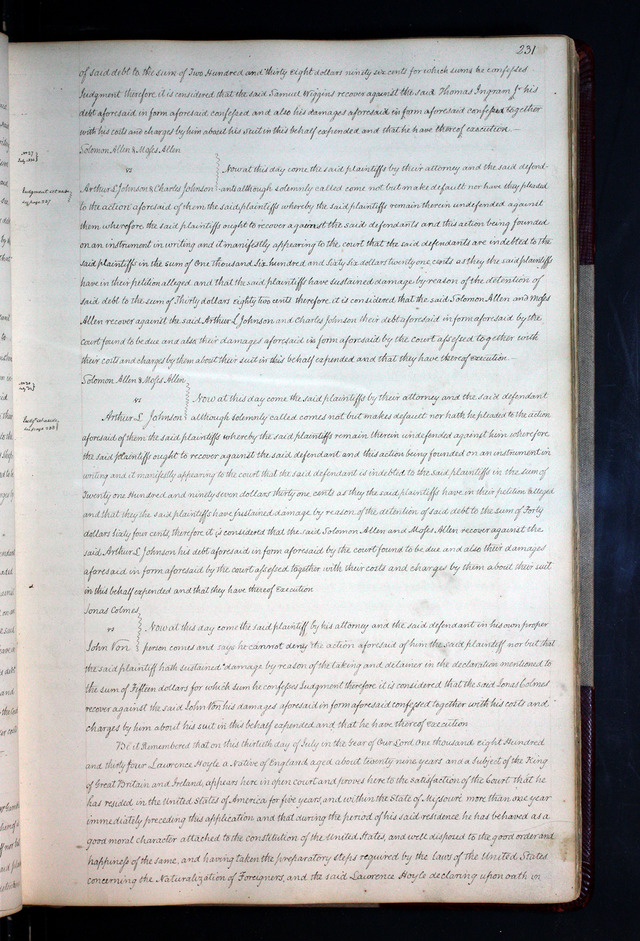 231
of said debt to the sum of Two Hundred and thirty eight dollars ninety six cents for which sums he confesses
Judgment therefore it is considered that the said Samuel Wiggins recover against the said Thomas Ingram Jr his
debt aforesaid in form aforesaid confessed and also his damages aforesaid in form aforesaid confessed together
with his costs and charges by him about his suit in this behalf expended and that he have thereof execution.—
Solomon Allen & Moses Allen
vs Now at this day come the said plaintiffs by their attorney and the said defend-
Arthur L Johnson & Charles Johnson ants although solemnly called come not but make default nor have they pleaded
to the action aforesaid of them the said plaintiffs whereby the said plaintiffs remain therein undefended against
them wherefore the said plaintiffs ought to recover against the said defendants and this action being founded
on an instrument in writing and it manifestly appearing to the court that the said defendants are indebted to the
said plaintiffs in the sum of One thousand Six hundred and Sixty six dollars twenty one cents as they the said plaintiffs
have in their petition alleged and that the said plaintiffs have sustained damage by reason of the detention of
said debt to the sum of Thirty dollars eighty two cents therefore it is considered that the said Solomon Allen and Moses
Allen recover against the said Arthur L Johnson and Charles Johnson their debt aforesaid in form aforesaid by the
court found to be due and also their damages aforesaid in form aforesaid by the court assessed together with
their costs and charges by them about their suit in this behalf expended and that they have thereof execution.—
Solomon Allen & Moses Allen
vs Now at this day come the said plaintiffs by their attorney and the said defendant
Arthur L. Johnson although solemnly called comes not but makes default nor hath he pleaded to the action
aforesaid of them the said plaintiffs whereby the said plaintiffs remain therein undefended against him wherefore
the said plaintiffs ought to recover against the said defendant and this action being founded on an instrument in
writing and it manifestly appearing to the court that the said defendant is indebted to the said plaintiffs in the sum of
Twenty one Hundred and ninety seven dollars thirty one cents as they the said plaintiffs have in their petition alleged
and that they the said plaintiffs have sustained damage by reason of the detention of said debt to the sum of Forty
dollars sixty four cents, therefore it is considered that the said Solomon Allen and Moses Allen recover against the
said Arthur L Johnson his debt aforesaid in form aforesaid by the court found to be due and also their damages
aforesaid in form aforesaid by the court assessed together with their costs and charges by them about their suit
in this behalf expended and that they have thereof Execution
Jonas Colmes
vs Now at this day come the said plaintiff by his attorney and the said defendant in his own proper
John Von person comes and says he cannot deny the action aforesaid of him the said plaintiff nor but that
the said plaintiff hath sustained damage by reason of the taking and detainer in the declaration mentioned to
the sum of Fifteen dollars for which sum he confesses Judgment therefore it is considered that the said Jonas Colmes
recover against the said John Von his damages aforesaid in form aforesaid confessed together with his costs and
charges by him about his suit in this behalf expended, and that he have thereof execution
Be it Remembered that on this thirtieth day of July in the Year of Our Lord One thousand eight Hundred
and thirty four Lawrence Hoyle a Native of England aged about twenty nine years and a subject of the King
of Great Britain and Ireland, appears here in open court and proves here to the satisfaction of the Court that he
has resided in the United States of America for five years, and within the State of Missouri more than one year
immediately preceding this application and that during the period of his said residence he has behaved as a
good moral character attached to the constitution of the United States, and well disposed to the good order and
happiness of the same, and having taken the preparatory steps required by the laws of the United States
concerning the Naturalization of Foreigners, and the said Lawrence Hoyle declaring upon oath in